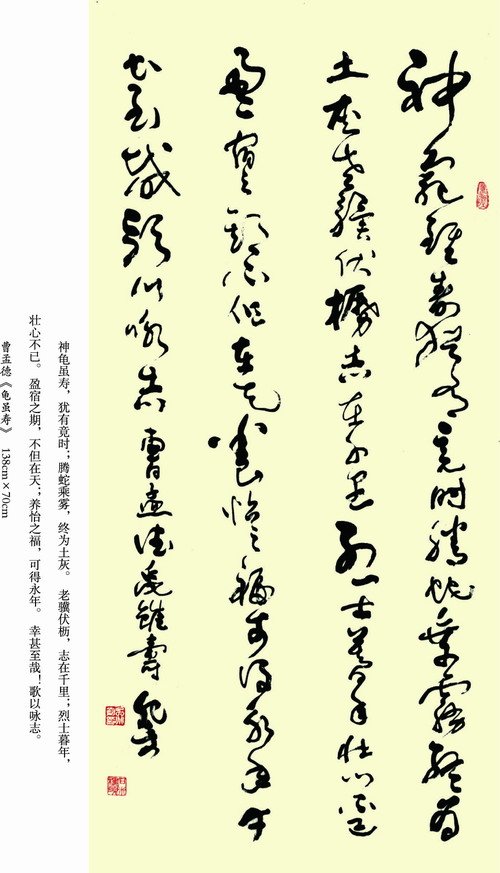 神龟雖寿猶有竟时腾蛇乘霧終为
土灰老骥伏櫪志在千里烈士暮年壮心不已
盈宿之期不但在天养怡之福可得永年幸
甚至哉歌以咏志曹孟德龟雖壽
神龟虽寿，犹有竟时；腾蛇乘雾，终为土灰。 老骥伏枥，志在千里；烈士暮年，
壮心不已。 盈宿之期，不但在天；养怡之福，可得永年。 幸甚至哉！歌以咏志。
曹孟德《龟虽寿》 138cm×70cm